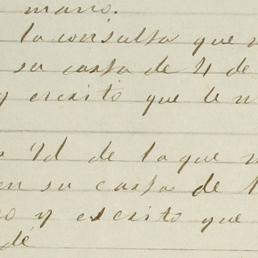 mano.
la consulta que
su carta de 4 de
y escrito que le
Id de la que
en su carta de
y escrito que
dé